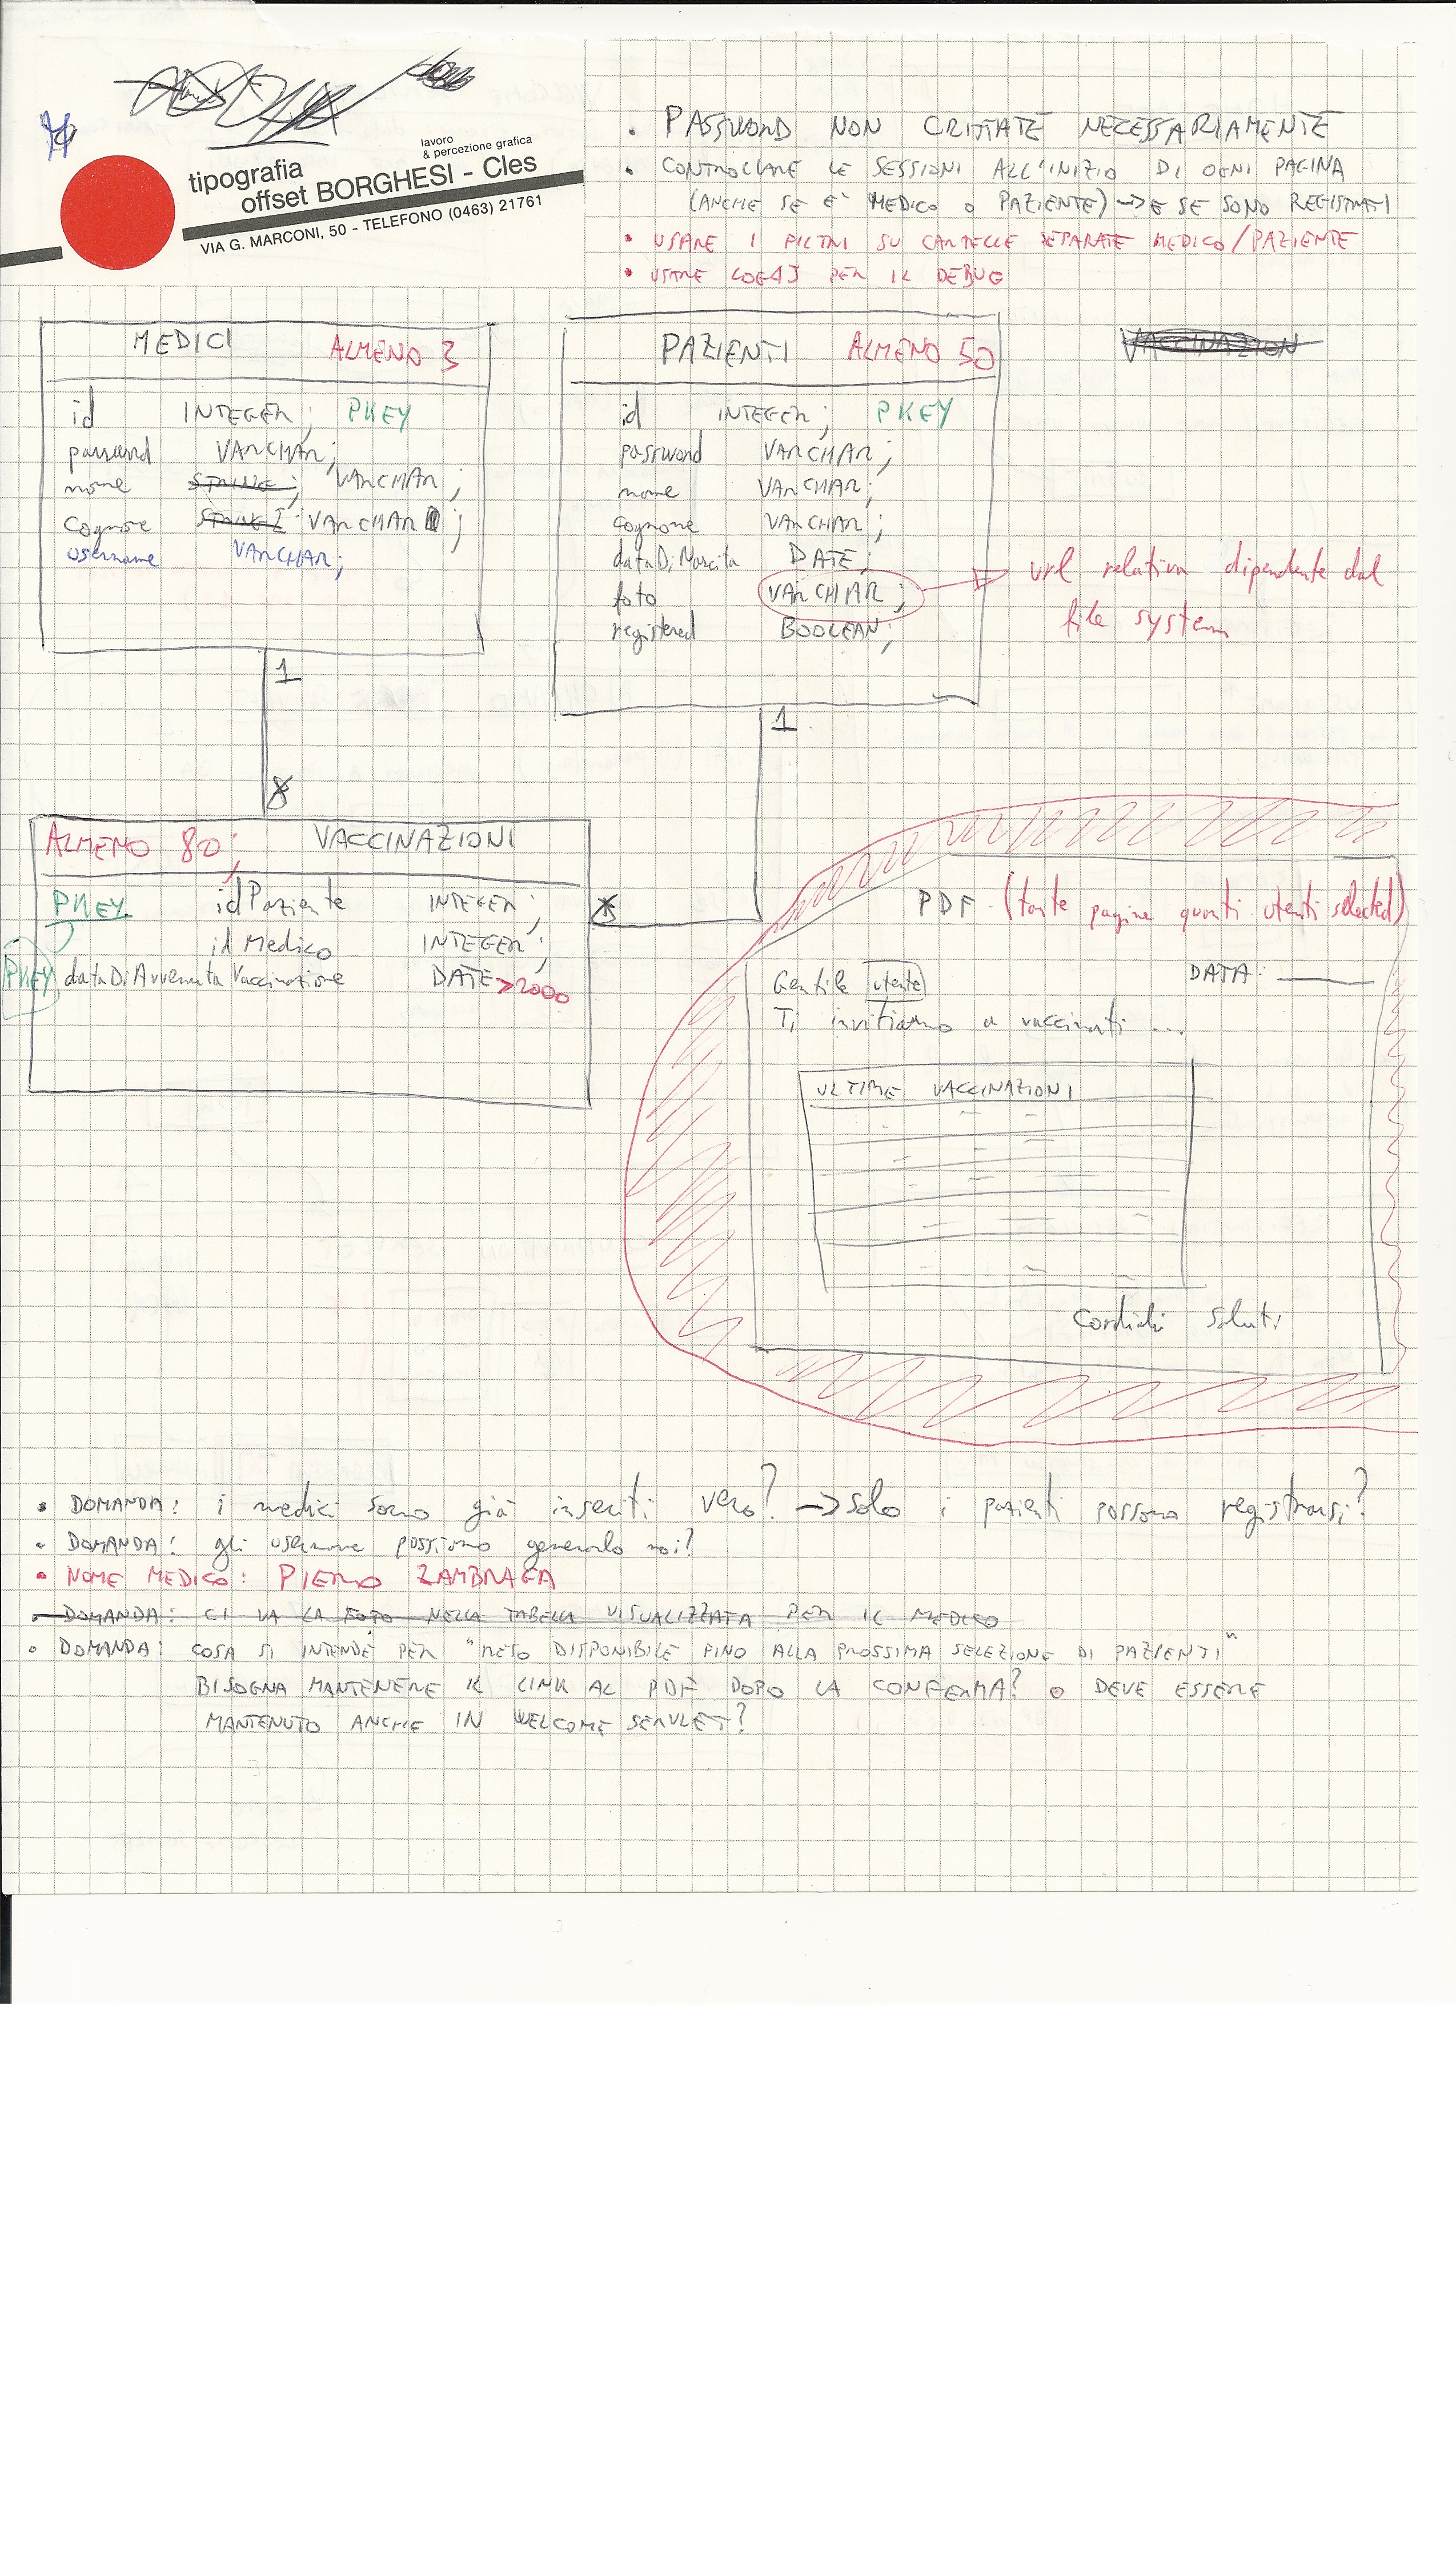 lavoro
& percezione grafica
tipografia
offset BORGHESI - Cles
VIA G. MARCONI, 50 - TELEFONO (0463) 21761
• PASSWORD NON CRITTATE NECESSARIAMENTE
• CONTROLLARE LE SESSIONI ALL'INIZIO DI OGNI PAGINA
(ANCHE SE E' MEDICO O PAZIENTE) -> E SE SONO REGISTRATI
• USARE I FILTRI SU CARTELLE SEPARATE MEDICO/PAZIENTE
• USARE LOG4J PER IL DEBUG
MEDICI ALMENO 3
id INTEGER; PKEY
password VARCHAR;
nome STRING; VARCHAR;
cognome STRING VARCHAR;
username VARCHAR;
1
*
PAZIENTI ALMENO 50
id INTEGER; PKEY
password VARCHAR;
nome VARCHAR;
cognome VARCHAR;
dataDiNascita DATE;
foto VARCHAR;
registered BOOLEAN;
url relativa dipendente dal
file system
VACCINAZION
1
*
ALMENO 80; VACCINAZIONI
PKEY idPaziente INTEGER;
idMedico INTEGER;
PKEY dataDiAvvenutaVaccinazione DATE >2000
PDF (tante pagine quanti utenti selected)
DATA: ______
Gentile utente
Ti invitiamo a vaccinarti ...
ULTIME VACCINAZIONI
Cordiali saluti
• DOMANDA: i medici sono già inseriti vero? -> solo i pazienti possono registrarsi?
• DOMANDA: gli username possiamo generarlo noi?
• NOME MEDICO: PIERO ZAMBRAGA
DOMANDA: CI VA LA FOTO NELLA TABELLA VISUALIZZATA PER IL MEDICO
• DOMANDA: COSA SI INTENDE PER "RESO DISPONIBILE FINO ALLA PROSSIMA SELEZIONE DI PAZIENTI"
BISOGNA MANTENERE IL LINK AL PDF DOPO LA CONFERMA? O DEVE ESSERE
MANTENUTO ANCHE IN WELCOME SERVLET?